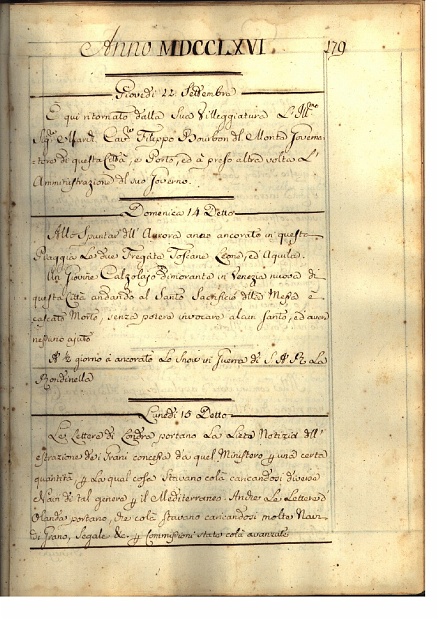 Anno MDCCLXVI. 179
Giovedi 22 Settembre
È qui ritornato dalla Sua Villeggiatura L'Ill.mo
Sig.e March. Cav.e Filippo Bourbon del Monte Governa-
tore di questa Città, e Porto, ed à preso altra volta L'
Amministrazione del suo Governo.
Domenica 14 Detto
Allo Spuntar dell' Aurora anno ancorato in questa
Piaggia Le due Fregate Toscane Leone, ed Aquila.
Un Giovine Calzolajo dimorante in Venezia nuova di
questa Città andando al Santo Sacrificio della Messa è
cascato Morto, senza potere invocare alcun Santo, ed aver
nessuno ajuto
A ½ giorno à ancorato Lo Snow in Guerra di S.A.R. La
Rondinella
Lunedì 15 Detto
Le Lettere di Londra portano La Lieta Notizia dell'
estrazione de i Grani concessa da quel Ministero p una certa
quantità p La qual cosa Stavano colà caricandosi diverse
Navi di tal genere p il Mediterraneo. Anche Le Lettere d'
Olanda portano, che colà Stavano caricandosi molte Navi
di Grano, Segale &c. p Commissioni state colà avanzate